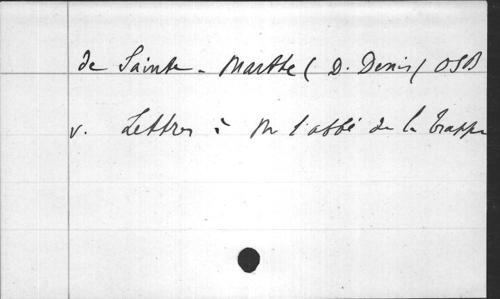 de Sainte-Marthe (D. Denis) OSB
v. Lettres à M l'abbé de la Trappe